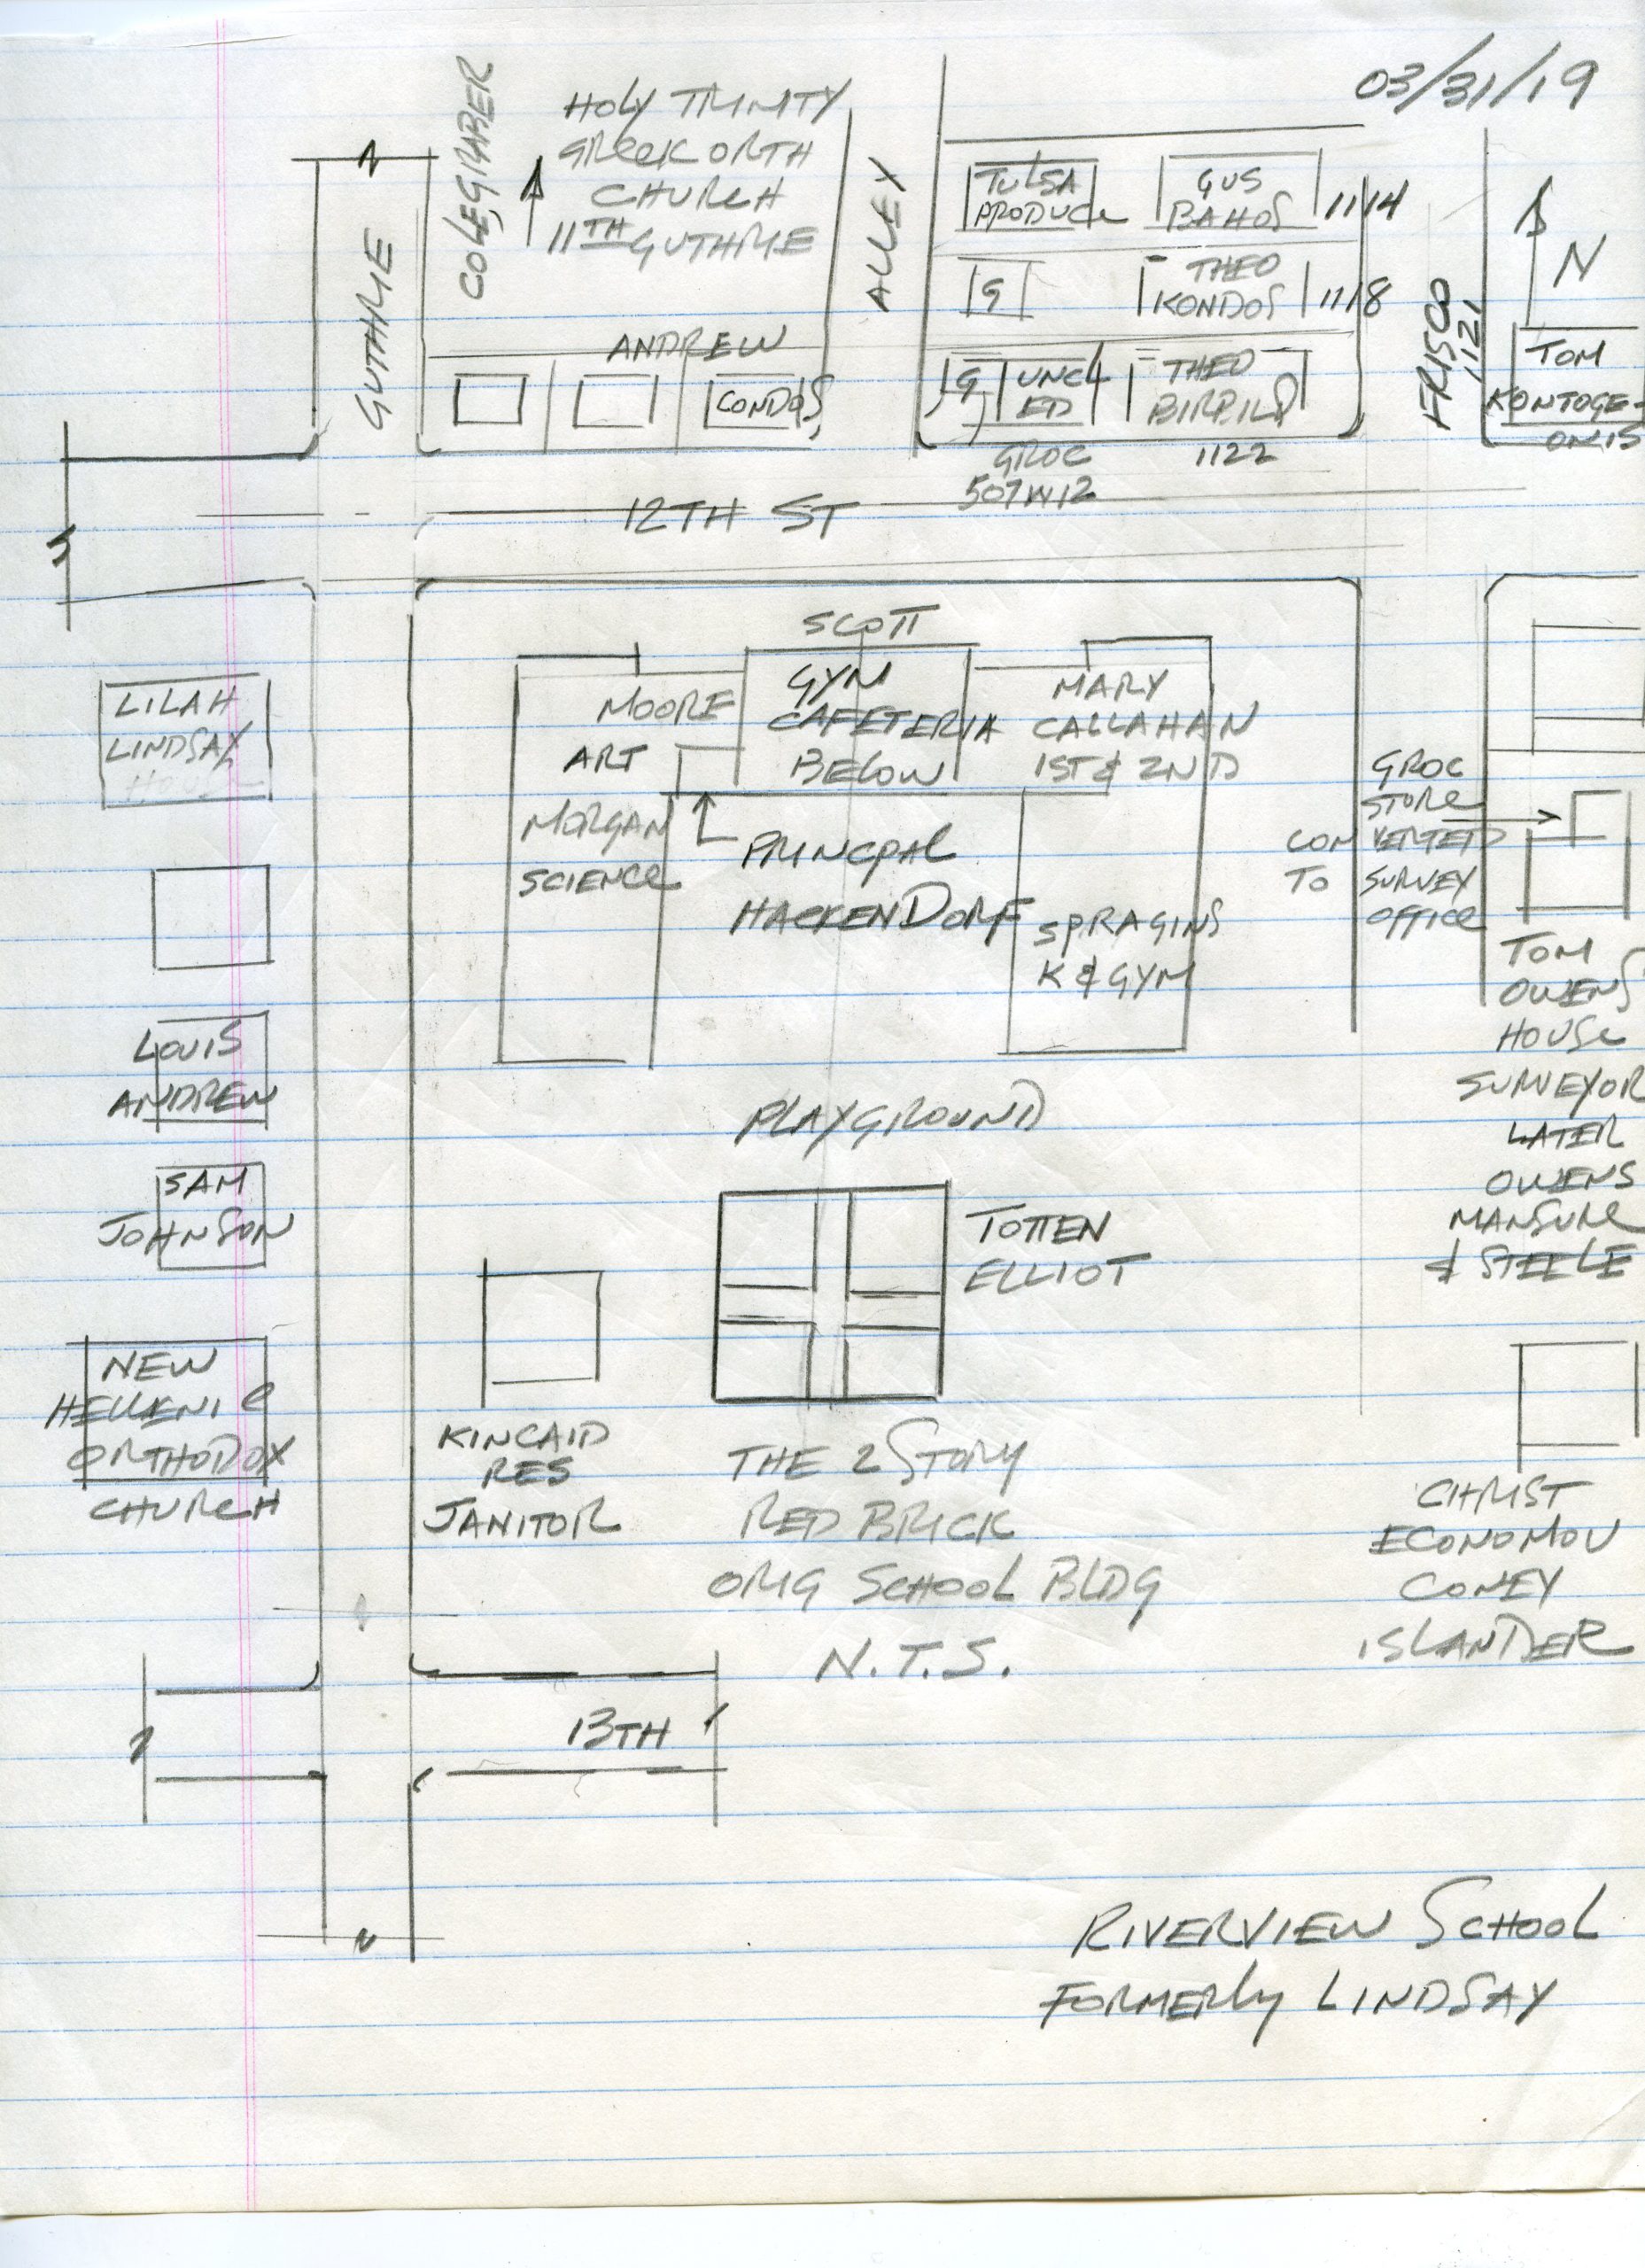 03/31/19
HOLY TRINITY
GREEK ORTH
CHURCH
11TH GUTHRIE
COLEGRABER
GUTHRIE
ALLEY
TULSA
PRODUCE
GUS
BAHOS
1114
G
THEO
KONDOS
1118
G
UNCL
ED
THEO
1122
GROC
507 W 12
FRISCO
1121
N
TOM
KONTOGE-
ONIS
ANDREW
CONDOS
12TH ST
SCOTT
LILAH
LINDSAY
HOUSE
MOORE
ART
MORGAN
SCIENCE
GYM
CAFETERIA
BELOW
MARY
CALLAHAN
1ST & 2ND
PRINCPAL
HACKENDORF
SPRAGINS
K & GYM
GROC
STORE
CONVERTED
TO SURVEY
OFFICE
TOM
OWENS
HOUSE
SURVEYOR
LATER
OWENS
MANSURE
& STEELE
LOUIS
ANDREW
SAM
JOHNSON
NEW
HELLENIC
ORTHODOX
CHURCH
PLAYGROUND
TOTTEN
ELLIOT
KINCAID
RES
JANITOR
THE 2 STORY
RED BRICK
ORIG SCHOOL BLDG
N.T.S.
CHRIST
ECONOMOU
CONEY
ISLANDER
13TH
RIVERVIEW SCHOOL
FORMERLY LINDSAY